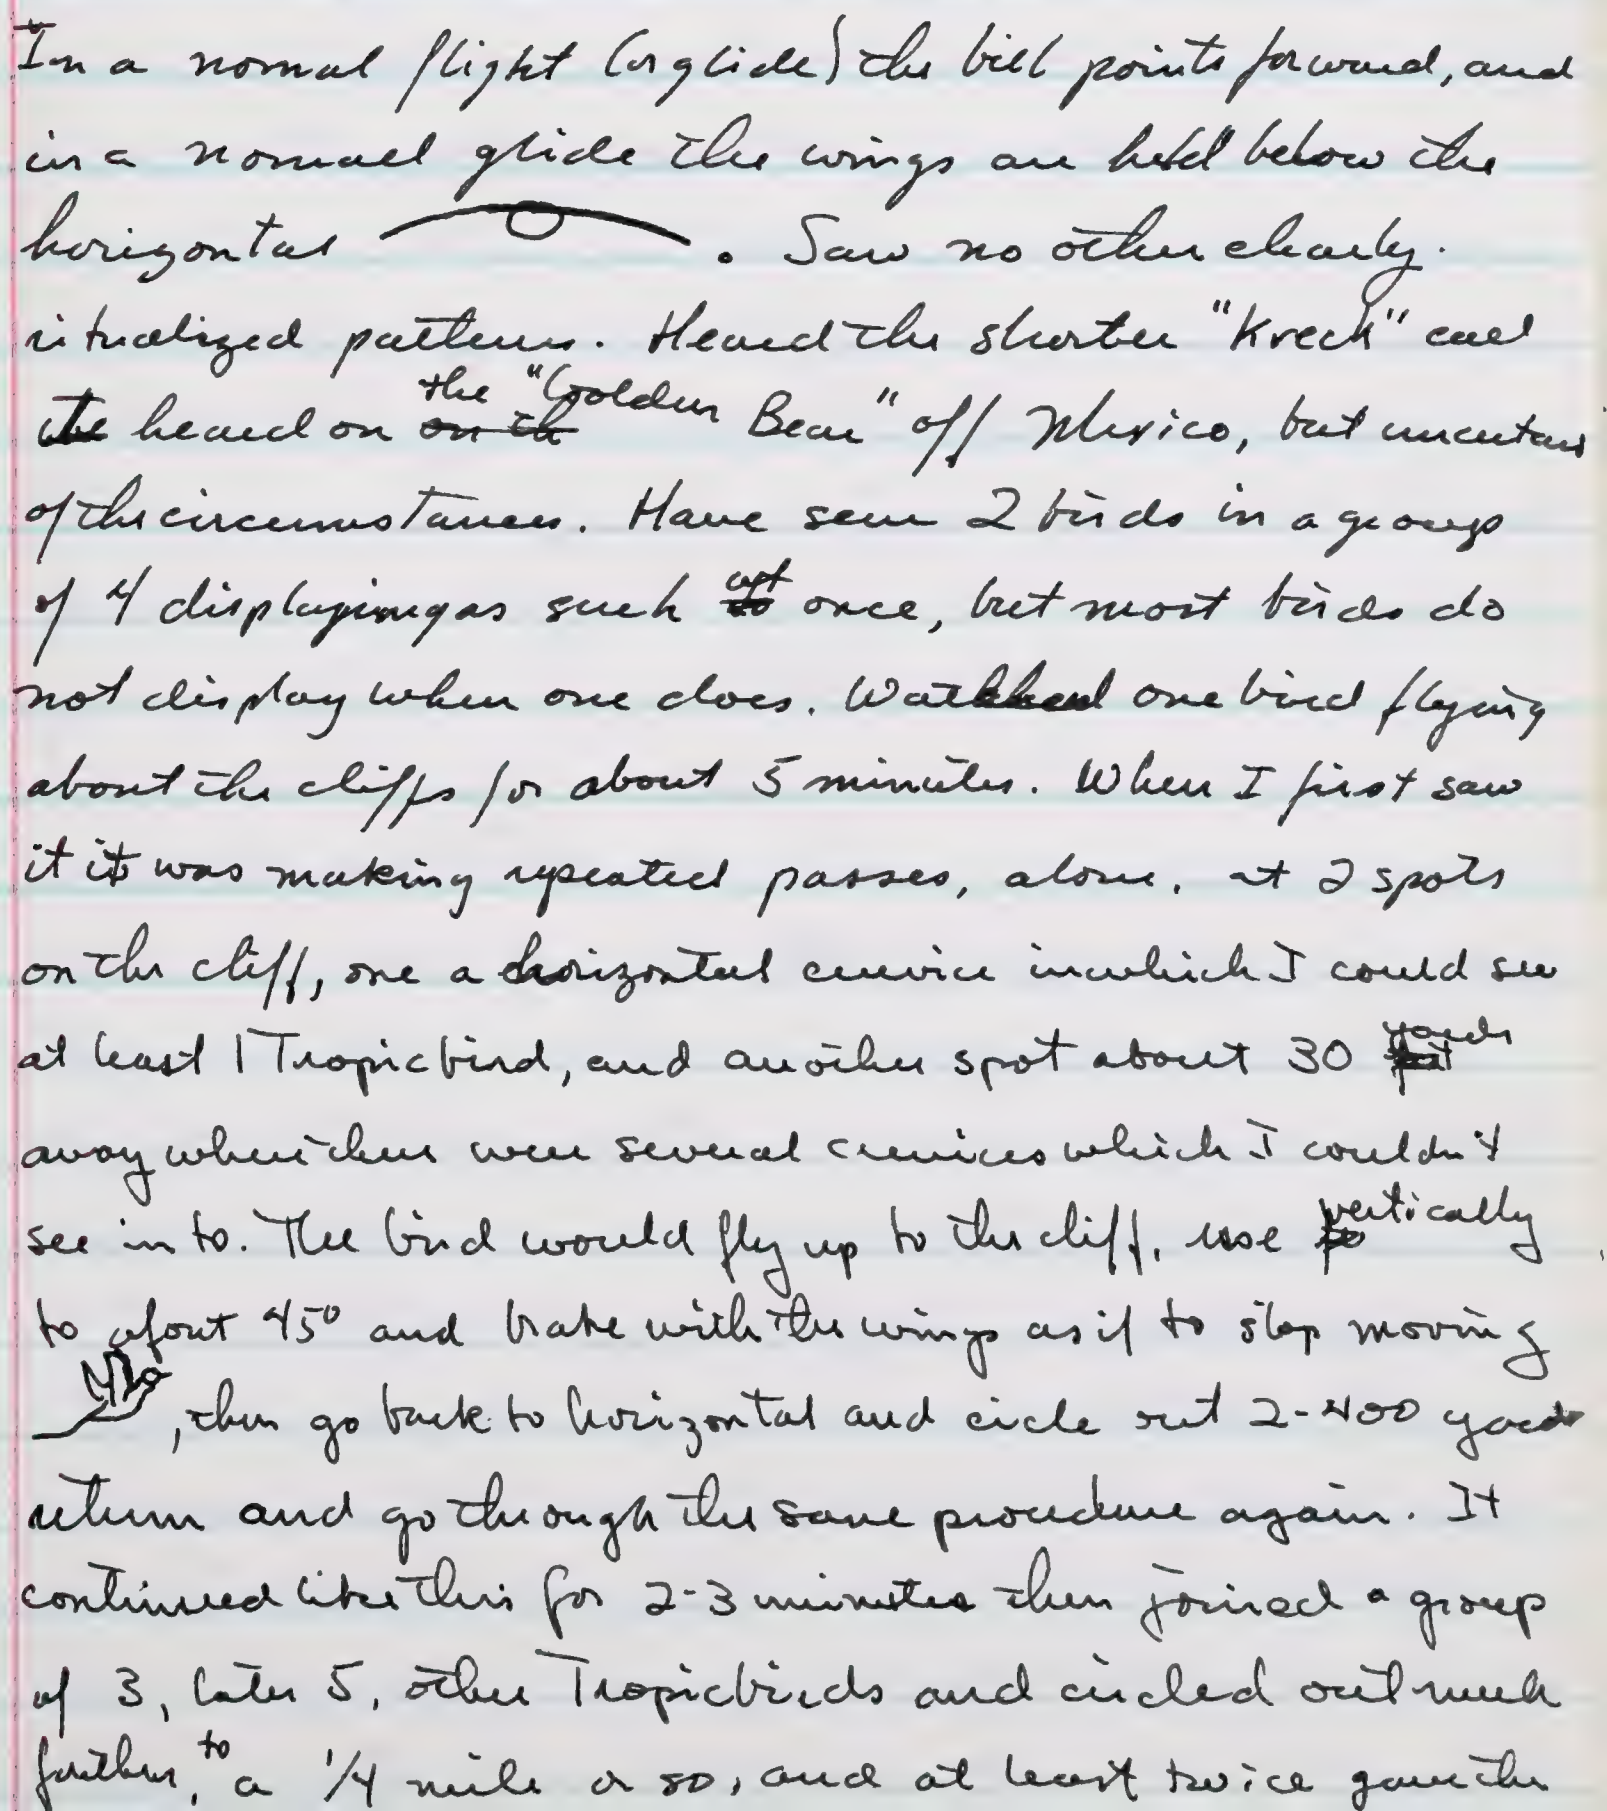 In a normal flight (or glide) the bill points forward, and
in a normal glide the wings are held below the
horizontal . Saw no other clearly.
ritualized patterns. Heard the shorter "Kreck" call
heard on the "Golden Bear" off Mexico, but uncertain
of the circumstances. Have seen 2 birds in a group
of 4 displaying as such at once, but most birds do
not display when one does. Watched one bird flying
about the cliffs for about 5 minutes. When I first saw
it it was making repeated passes, alone, at 2 spots
on the cliff, one a horizontal crevice in which I could see
at least 1 Tropicbird, and another spot about 30 yards
away where there were several crevices which I couldn't
see in to. The bird would fly up to the cliff, rise vertically
to about 45° and brake with the wings as if to stop moving
, then go back to horizontal and circle out 2-400 yards
return and go through the same procedure again. It
continued like this for 2-3 minutes then joined a group
of 3, later 5, other Tropicbirds and circled out much
further, to a 1/4 mile or so, and at least twice gave the